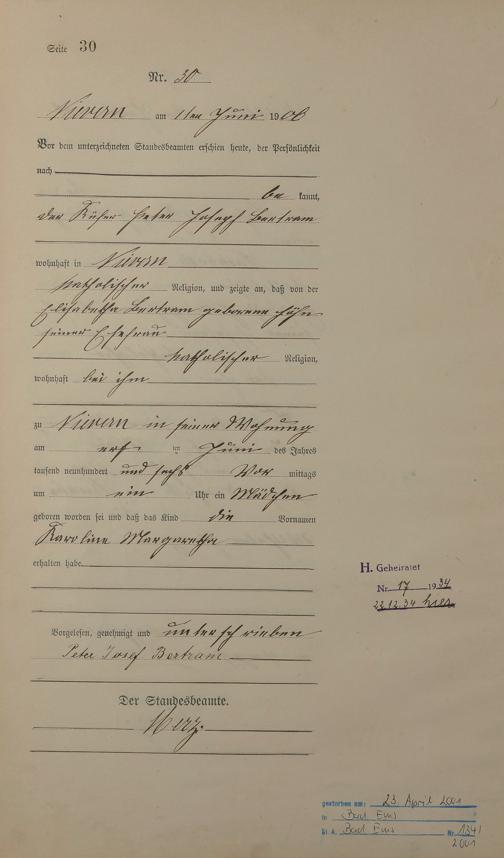 Seite 30
Nr. 30
Nievern am 1ten Juni 1906
Vor dem unterzeichneten Standesbeamten erschien heute, der Persönlichkeit
nach
be kannt,
der Küfer Peter Joseph Bertram
wohnhaft in Nievern
katholischer Religion, und zeigte an, daß von der
Elisabetha Bertram geborene Höhn
seiner Ehefrau
katholischer Religion,
wohnhaft bei ihm
zu Nievern in seiner Wohnung
am ersten Juni des Jahres
tausend neunhundert und sechs Vor mittags
um ein Uhr ein Mädchen
geboren worden sei und daß das Kind die Vornamen
Karoline Margaretha
erhalten habe
Vorgelesen, genehmigt und unterschrieben
Peter Josef Bertram
Der Standesbeamte.
Merz
H. Geheiratet
Nr. 17 1934
23.12.34 hier
gestorben am: 23. April 2001
in Bad Ems
St. A. Bad Ems Nr. 124/
2001